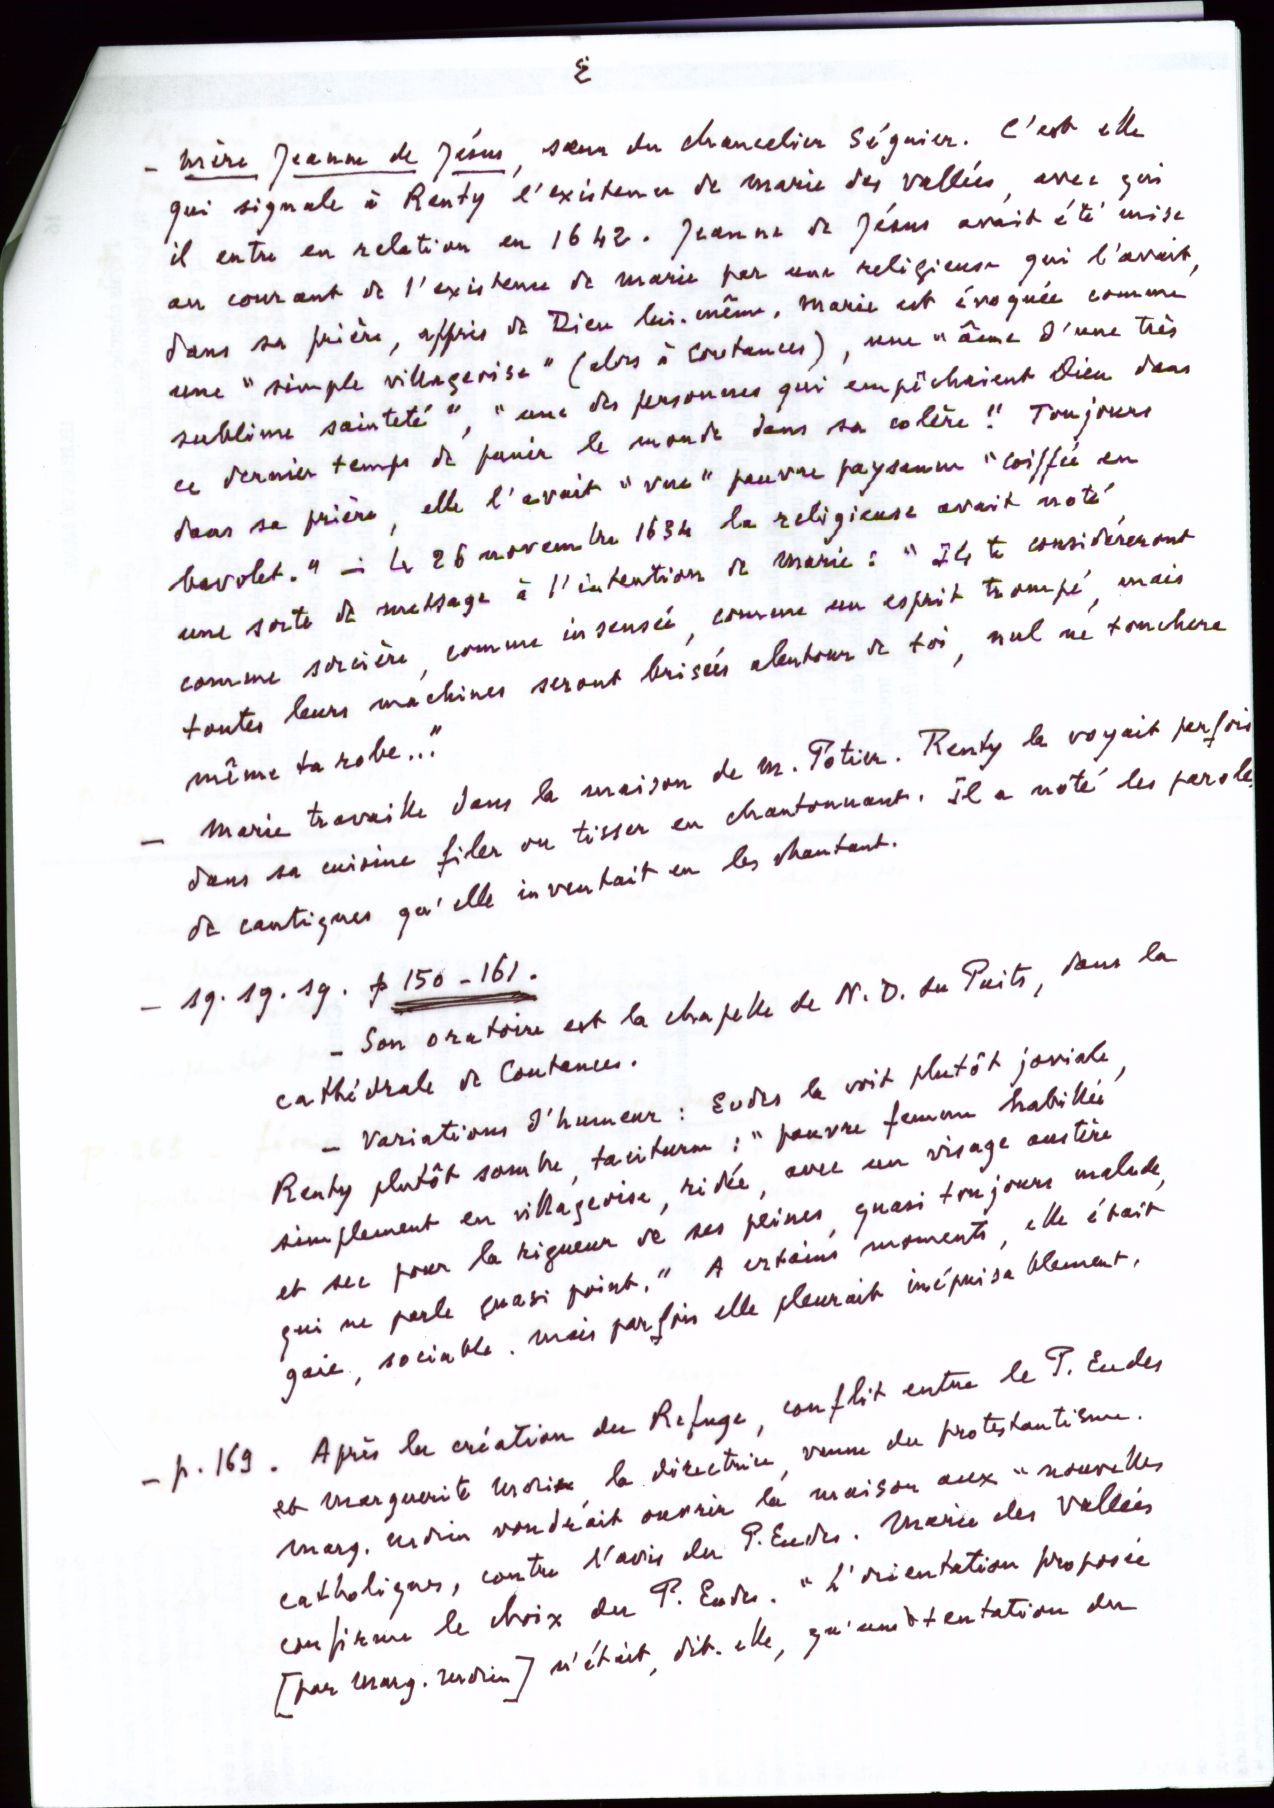 - Mère Jeanne de Jésus, sœur du chancelier Séguier. C'est elle
qui signale à Renty l'existence de Marie des Vallées, avec qui
il entre en relation en 1642. Jeanne de Jésus avait été mise
au courant de l'existence de Marie par une religieuse qui l'avait,
dans sa prière, appris de Dieu lui-même. Marie est évoquée comme
une "simple villageoise" (alors à Coutances), une "âme d'une très
sublime sainteté", "une des personnes qui empêchaient Dieu dans
ce dernier temps de punir le monde dans sa colère". Toujours
dans sa prière, elle l'avait "vue" pauvre paysanne "coiffée en
bavolet." - Le 26 novembre 1634 la religieuse avait noté
une sorte de message à l'intention de Marie : "Ils te considéreront
comme sorcière, comme insensée, comme un esprit trompé, mais
toutes leurs machines seront brisées alentour de toi, nul ne touchera
même ta robe..."
- Marie travaille dans la maison de M. Potier. Renty la voyait parfois
dans sa cuisine filer ou tisser en chantonnant. Il a noté les paroles
de cantiques qu'elle inventait en les chantant.
- sq. sq. sq. p 150-161.
- Son oratoire est la chapelle de N.D. du Puits, dans la
cathédrale de Coutances.
- Variations d'humeur : Eudes la voit plutôt joviale,
Renty plutôt sombre, taciturne : "pauvre femme habillée
simplement en villageoise, ridée, avec un visage austère
et sec pour la rigueur de ses peines, quasi toujours malade,
qui ne parle quasi point." A certains moments, elle était
gaie, sociable. Mais parfois elle pleurait inépuisablement.
- p. 169. Après la création du Refuge, conflit entre le P. Eudes
et Marguerite Morin, la directrice, venue du protestantisme.
Marg. Morin voudrait ouvrir la maison aux "nouvelles
catholiques, contre l'avis du P. Eudes. Marie des Vallées
confirme le choix du P. Eudes. "L'orientation proposée
[par Marg. Morin] n'était, dit-elle, qu'une tentation du